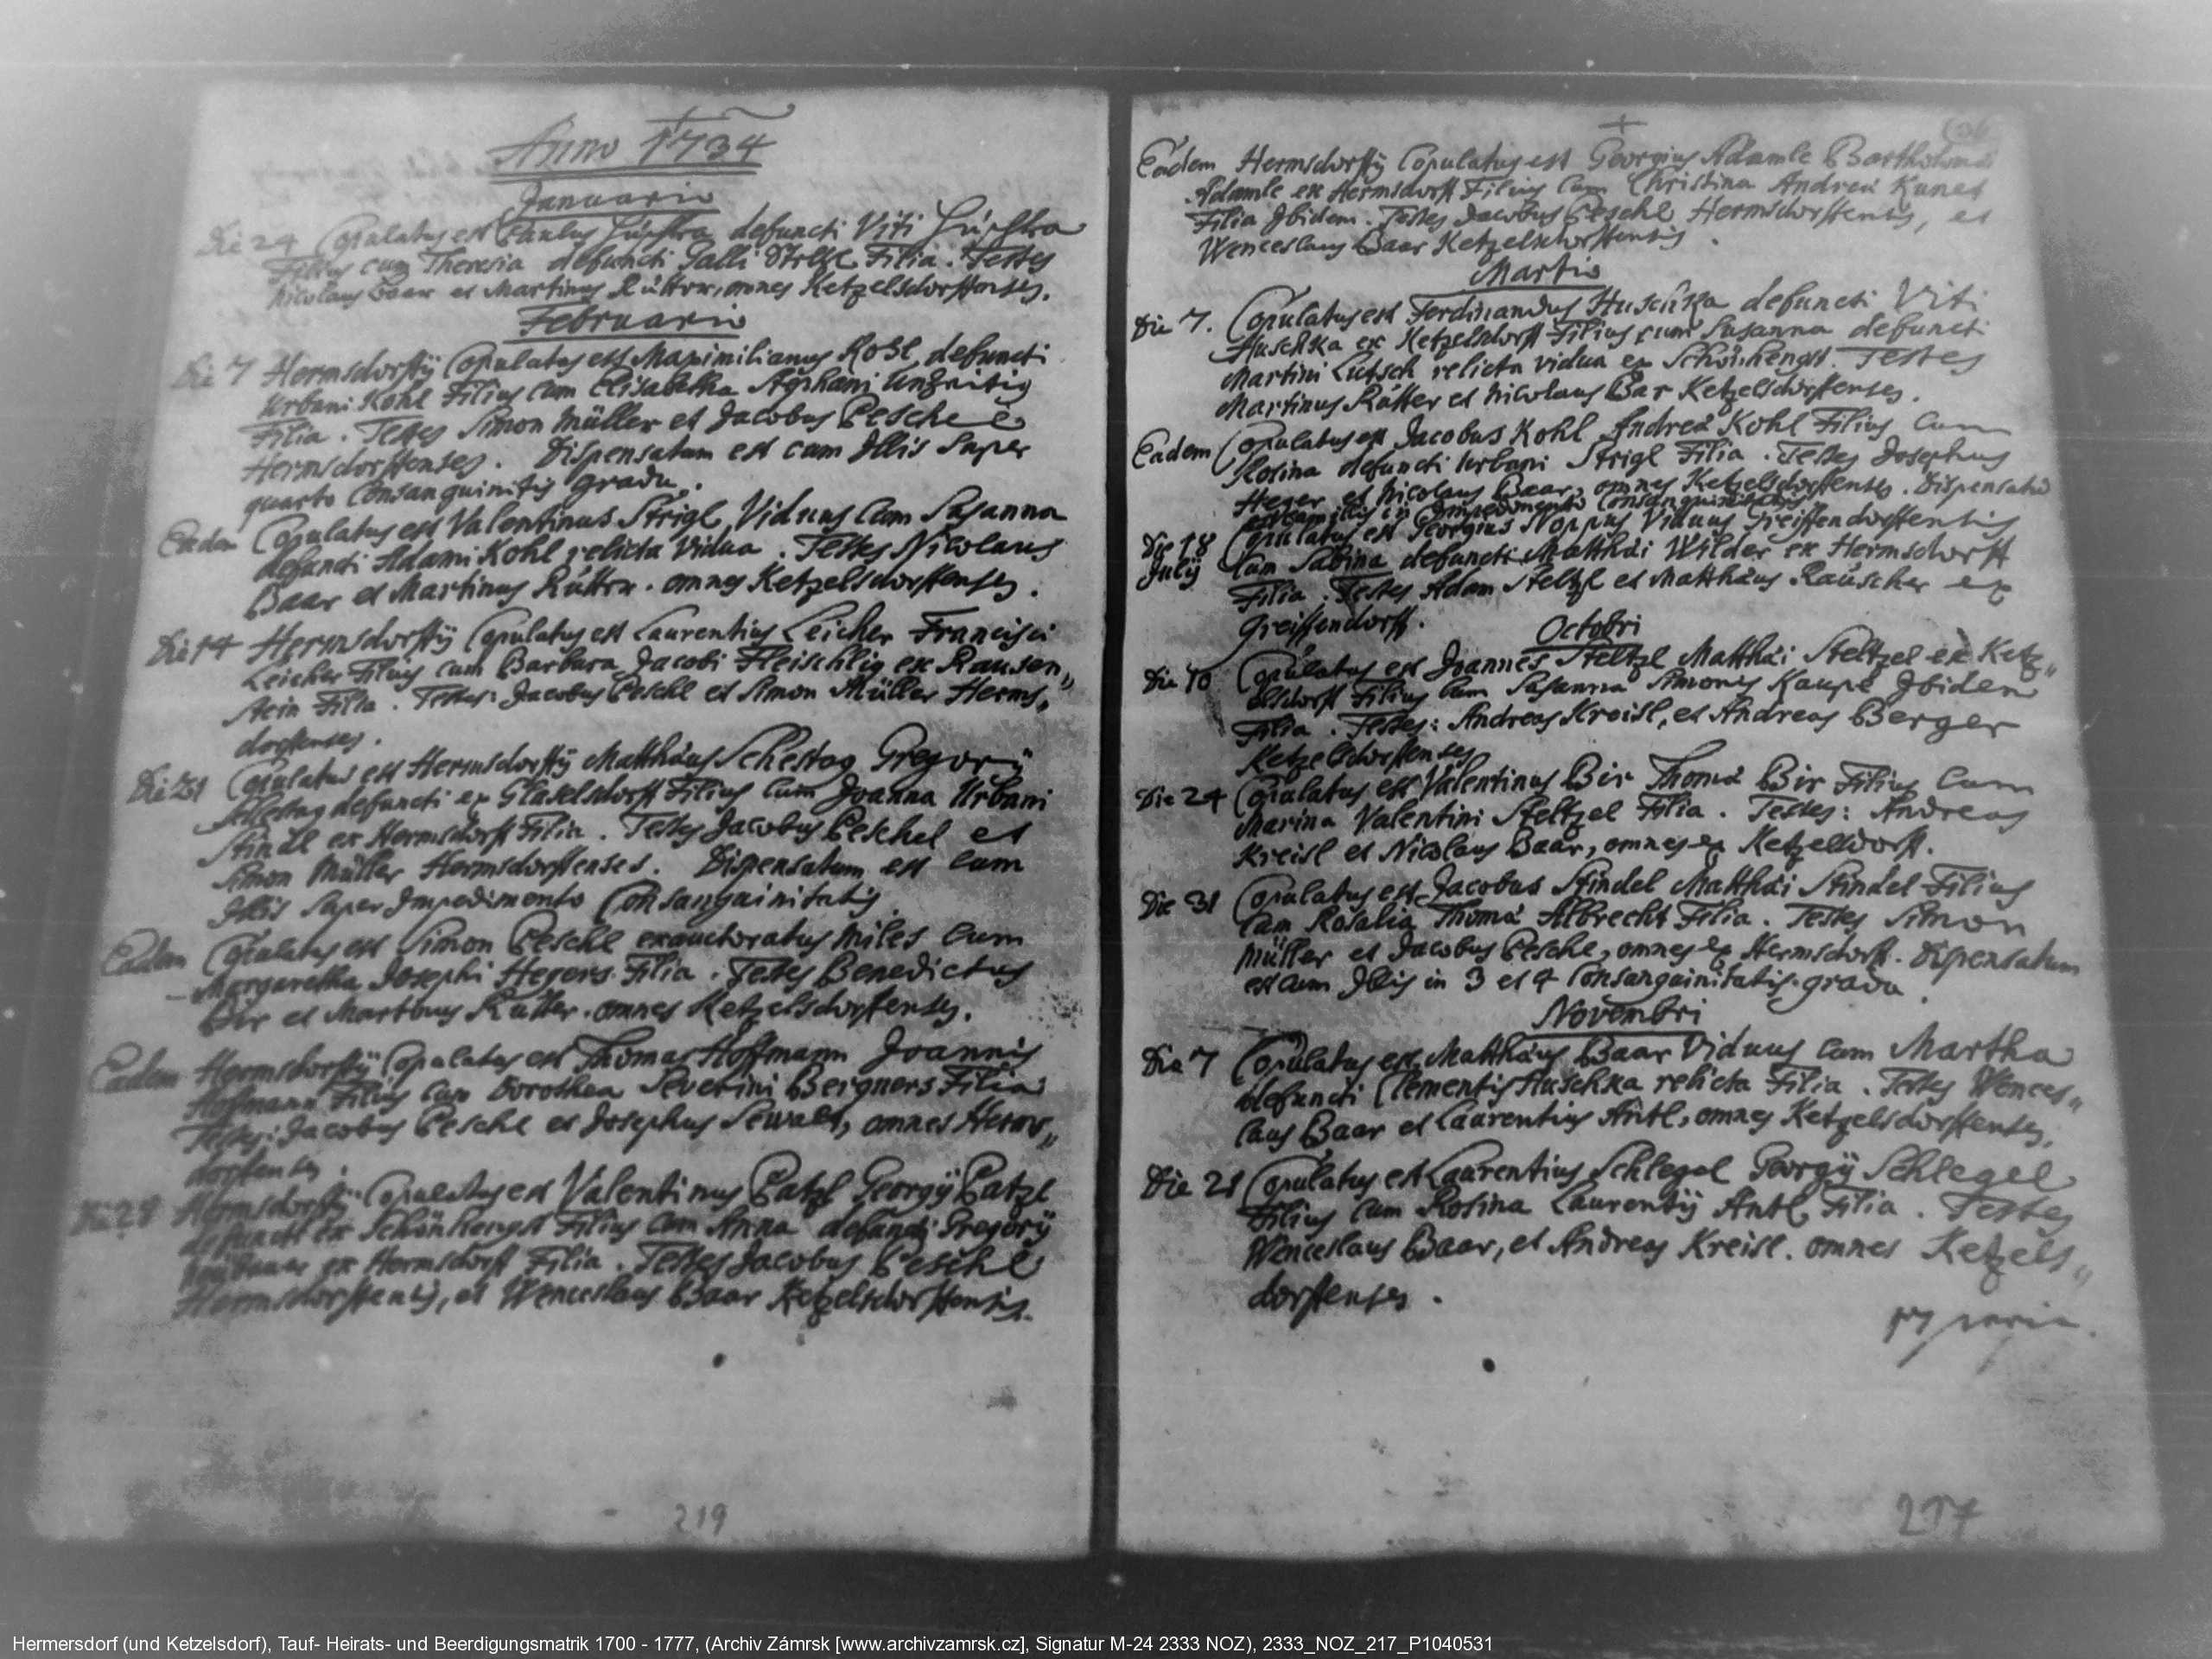 Anno 1734
Januario
Die 24 Copulatus est Paulus Huschka defuncti Viti Huschka
Filius cum Theresia defuncti Galli Filia. Testes
Nicolaus Baar et Martinus Rütter, omnes Ketzelsdorffenses.
Februario
Die 7 Hermsdorffÿ Copulatus est Maximilianus Kohl, defuncti
Urbani Kohl Filius cum Elisabetha Unzeitig
Filia. Testes Simon Müller et Jacobus Peschel
Hermsdorffenses. Dispensatum est cum Illis super
quarto Consanguinitis gradu.
Eadem Copulatus est Valentinus Strigl, Viduus cum Susanna
defuncti Adami Kohl relicta Vidua. Testes Nicolaus
Baar et Martinus Rüttrr. omnes Ketzelsdorffenses.
Die 14 Hermsdorffÿ Copulatus est Laurentius Leicher Francisci
Leicher Filius cum Barbara Jacobi Fleischlig ex Rausen„
stein Filia. Testes: Jacobus Peschl et Simon Müller Herms„
dorffenses.
Die 21 Copulatus est Hermsdorffÿ Matthäus Schestag Gregorÿ
Schestag defuncti ex Glaselsdorff Filius cum Joanna Urbani
Stindl ex Hermsdorff Filia. Testes Jacobus Peschel et
Simon Müller Hermsdorffenses. Dispensatum est cum
Illis super Impedimento Consanguinitatis.
Eadem Copulatus est Simon Peschl exauctoratus miles cum
Margaretha Josephi Hegers Filia. Testes Benedictus
Bir et Martinus Rütter. omnes Ketzelsdorffenses.
Eadem Hermsdorffÿ Copulatus est Thomas Hoffmann Joannis
Hoffmann Filius cum Dorothea Severini Bergners Filia
Testes: Jacobus Peschl et Josephus Sewalt, omnes Herms„
dorffenses.
Die 28 Hermsdorffÿ Copulatus est Valentinus Patzl Georgÿ Patzl
defuncti ex Schönhengst Filius cum Anna defuncti Gregorÿ
ex Hermsdorff Filia. Testes Jacobus Peschl
Hermsdorffensis, et Wenceslaus Baar Ketzelsdorffensis.
219
Eadem Hermsdorffÿ Copulatus est Georgius Adamle Bartholomæi
Adamle ex Hermsdorff Filius cum Christina Andreæ
Filia Ibidem. Testes Jacobus Peschl Hermsdorffensis, et
Wenceslaus Baar Ketzelsdorffensis.
Martio
Die 7. Copulatus est Ferdinandus Huschka defuncti Viti
Huschka ex Ketzelsdorff Filius, cum Susanna defuncti
Martini Lütsch relicta vidua ex Schönhengst. Testes
Martinus Rütter et Nicolaus Bar Ketzelsdorffenses.
Eadem Copulatus est Jacobus Kohl Andreæ Kohl Filius cum
Rosina defuncti Urbani Strigl Filia. Testes Josephus
Heger et Nicolaus Baar, omnes Ketzelsdorffenses. Dispensatū
est cum illis in Impedimento Consanguinitatis
Die 18 Copulatus est Georgius Noppus Viduus Greiffendorffensis
Julÿ cum Sabina defuncti Matthäi Wilder ex Hermsdorff
Filia. Testes Adam Steltzl et Matthäus Räuscher ex
Greiffendorff.
Octobri
Die 10 Copulatus est Joannes Steltzl Matthäi Steltzel ex Ketz„
elsdorff Filius cum Susanna Simonis Kaupe Ibidem
Filia. Testes: Andreas Kreisl, et Andreas Berger
Ketzelsdorffenses
Die 24 Copulatus est Valentinus Bir Thomæ Bir Filius cum
Marina Valentini Steltzel Filia. Testes: Andreas
Kreisl et Nicolaus Baar, omnes ex Ketzelsdorff.
Die 31 Copulatus est Jacobus Stindel Matthäi Stindel Filius
cum Rosalia Thomæ Albrecht Filia. Testes Simon
Müller et Jacobus Peschl, omnes ex Hermsdorff. Dispensatum
est cum Illis in 3 et 4 Consanguinitatis gradu.
Novembri
Die 7 Copulatus est Matthäus Baar Viduus cum Martha
defuncti Clementis Huschka relicta Filia. Testes Wences„
laus Baar et Laurentius Antl, omnes Ketzelsdorffenses.
Die 21 Copulatus est Laurentius Schlegel Georgÿ Schlegel
Filius cum Rosina Laurentÿ Antl Filia. Testes
Wenceslaus Baar, et Andreas Kreisl. omnes Ketzels„
dorffenses.
217
Hermersdorf (und Ketzelsdorf), Tauf- Heirats- und Beerdigungsmatrik 1700 - 1777, (Archiv Zámrsk [www.archivzamrsk.cz], Signatur M-24 2333 NOZ), 2333_NOZ_217_P1040531